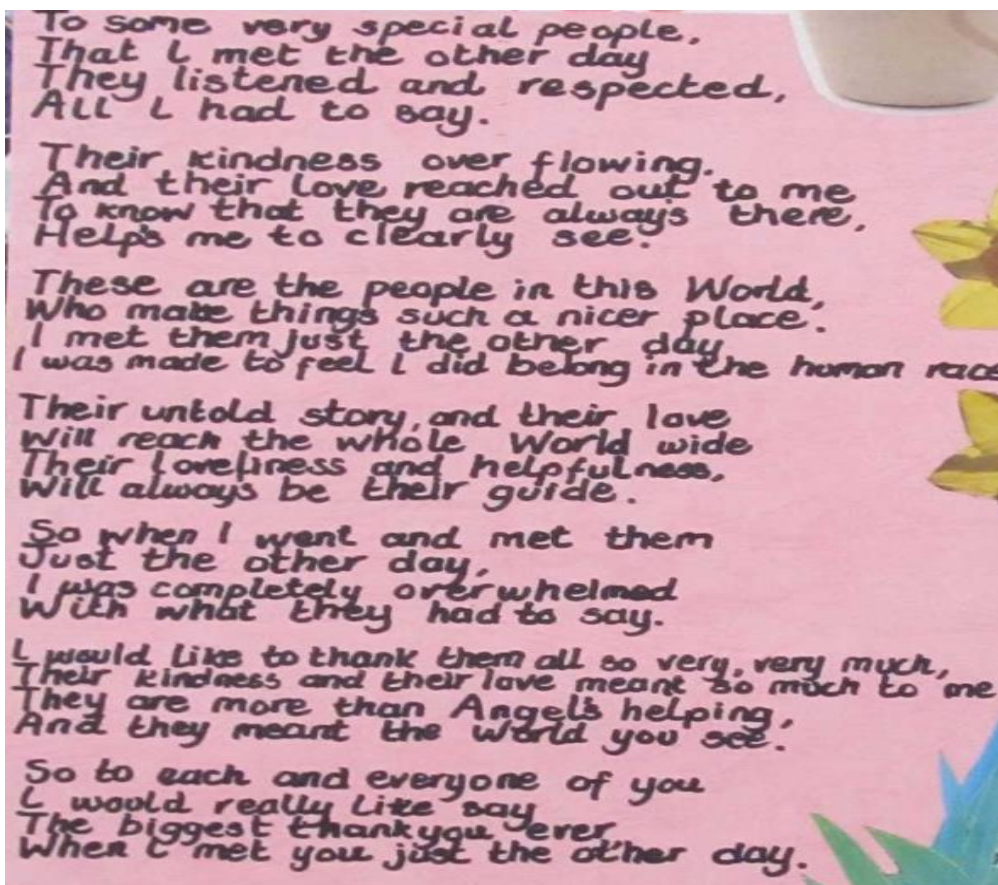 To some very special people,
That I met the other day
They listened and respected,
All I had to say.
Their kindness over flowing.
And their love reached out to me
To know that they are always there,
Helps me to clearly see.
These are the people in this World,
Who make things such a nicer place.
I met them just the other day
I was made to feel I did belong in the human race
Their untold story, and their love
Will reach the whole World wide
Their loveliness and helpfulness,
Will always be their guide.
So when I went and met them
Just the other day,
I was completely overwhelmed
With what they had to say.
I would like to thank them all so very, very much,
Their kindness and their love meant so much to me
They are more than Angels helping,
And they meant the World you see.
So to each and everyone of you
I would really like say
The biggest thankyou ever
When I met you just the other day.